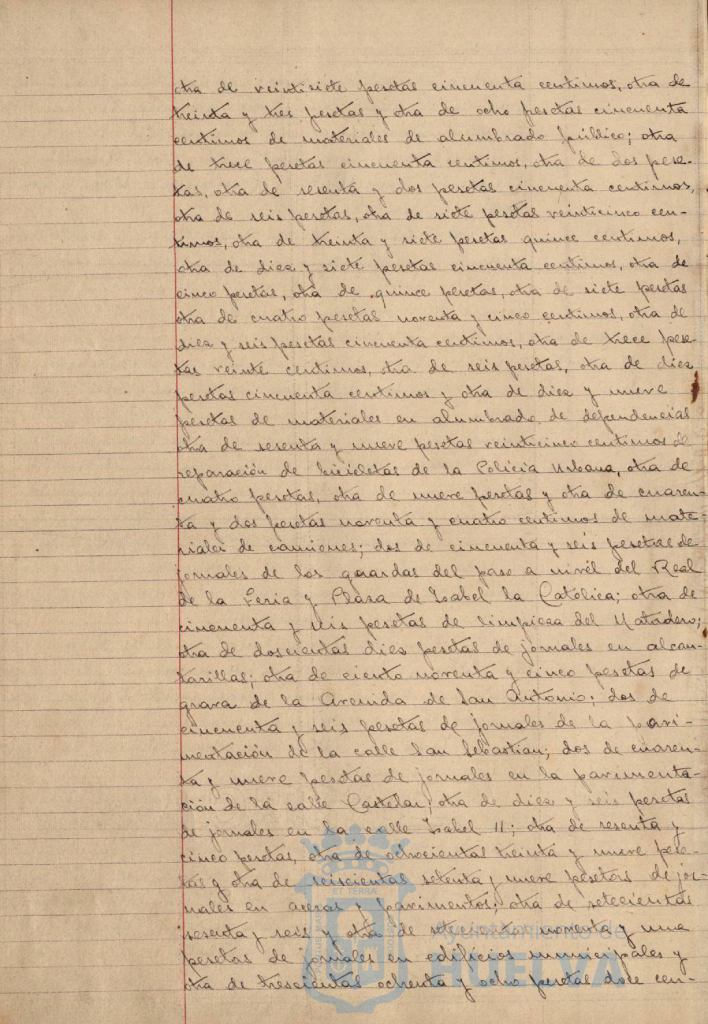 otra de veintisiete pesetas cincuenta centimos, otra de
treinta y tres pesetas y otra de ocho pesetas cincuenta
centimos de materiales de alumbrado público; otra
de trece pesetas cincuenta centimos, otra de dos pese-
tas, otra de sesenta y dos pesetas cincuenta centimos,
otra de seis pesetas, otra de siete pesetas veinticinco cen-
timos, otra de treinta y siete pesetas quince centimos,
otra de diez y siete pesetas cincuenta centimos, otra de
cinco pesetas, otra de quince pesetas, otra de siete pesetas
otra de cuatro pesetas noventa y cinco centimos, otra de
diez y seis pesetas cincuenta centimos, otra de trece pese-
tas veinte centimos, otra de seis pesetas, otra de diez
pesetas cincuenta centimos y otra de diez y nueve
pesetas de materiales en alumbrado de dependencias
otra de sesenta y nueve pesetas veinticinco centimos de
reparación de bicicletas de la Policia Urbana, otra de
cuatro pesetas, otra de nueve pesetas y otra de cuaren-
ta y dos pesetas noventa y cuatro centimos de mate-
riales de camiones; dos de cincuenta y seis pesetas de
jornales de los guardas del paso a nivél del Real
de la Feria y Plaza de Isabel la Católica; otra de
cincuenta y seis pesetas de limpieza del Matadero;
otra de doscientas diez pesetas de jornales en alcan-
tarillas; otra de ciento noventa y cinco pesetas de
grava de la Avenida de San Antonio; dos de
cincuenta y seis pesetas de jornales de la pavi-
mentación de la calle San Sebastian; dos de cuaren-
ta y nueve pesetas de jornales en la pavimenta-
ción de la calle Castelar; otra de diez y seis pesetas
de jornales en la calle Isabel II; otra de sesenta y
cinco pesetas, otra de ochocientas treinta y nueve pese-
tas y otra de seiscientas setenta y nueve pesetas de jor-
nales en aceras y pavimentos; otra de setecientas
sesenta y seis y otra de setecientas noventa y una
pesetas de jornales en edificios municipales y
otra de trescientas ochenta y ocho pesetas doce cen-
Ayuntamiento de
HUELVA